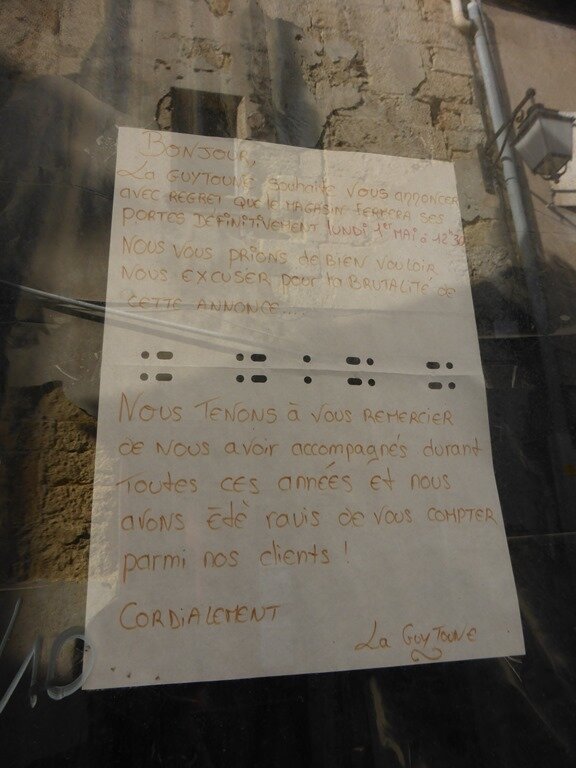 BONJOUR,
La GUYTOUNE souhaite vous annoncer
avec regret que le magasin fermera ses
portes définitivement lundi 1er mai à 12h30
Nous vous prions de bien vouloir
nous excuser pour la brutalité de
cette annonce...
Nous tenons à vous remercier
de nous avoir accompagnés durant
toutes ces années et nous
avons été ravis de vous compter
parmi nos clients !
CORDIALEMENT
La GuyToune
10